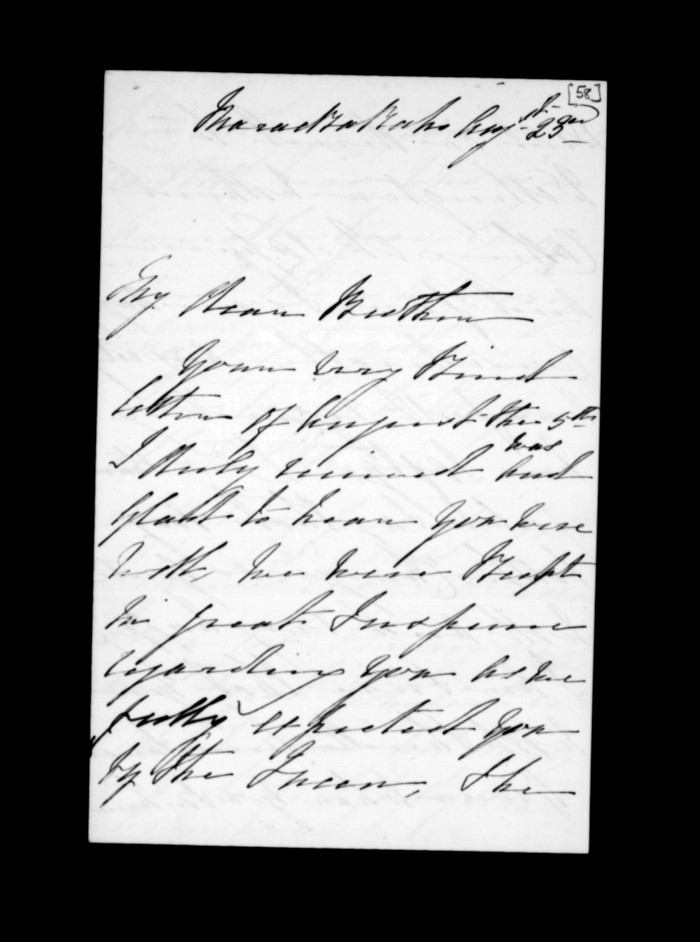 [58]
Maraekakaho Augst 23rd
My Dear Brother
Your very Kind
letter of August the 5th
was
I duly received and
glad to hear you were
well, we were Kept
in great Suspense
regarding you as we
fully expected you
by the Queen, The